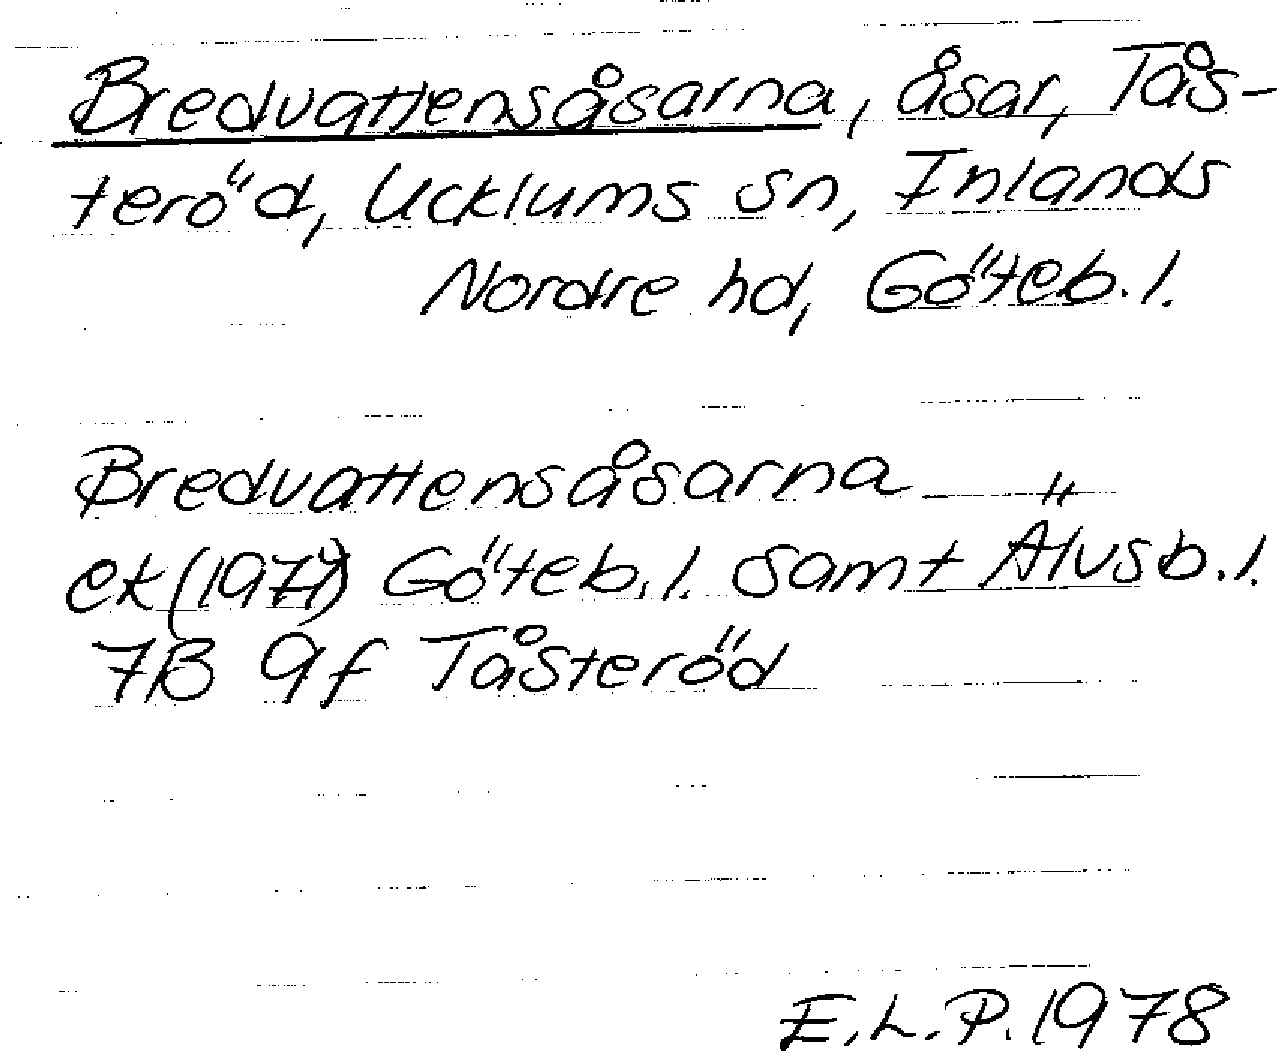 Bredvattensåsarna, åsar, Tås-
teröd, Ucklums sn, Inlands
Nordre hd, Göteb. l.
Bredvattensåsarna "
ek (1977) Göteb. l. samt Älvsb. l.
7B 9f Tåsteröd
E.L.P. 1978